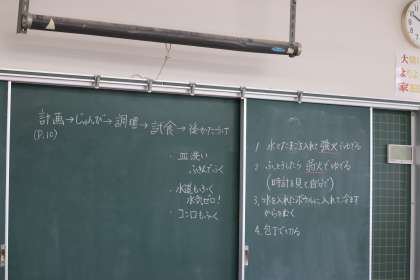 計画→じゅんび→調理→試食→後かたづけ
(P.10)
・皿洗い
ふきんでふく
・水道もふく
水気ゼロ！
・コンロもふく
1. 水でたまごを入れて強火でゆでる
2. ふっとうしたら弱火でゆでる
(時計を見て自分で)
3. 水を入れたボウルに入れて冷ます
からをむく
4. 包丁で切る